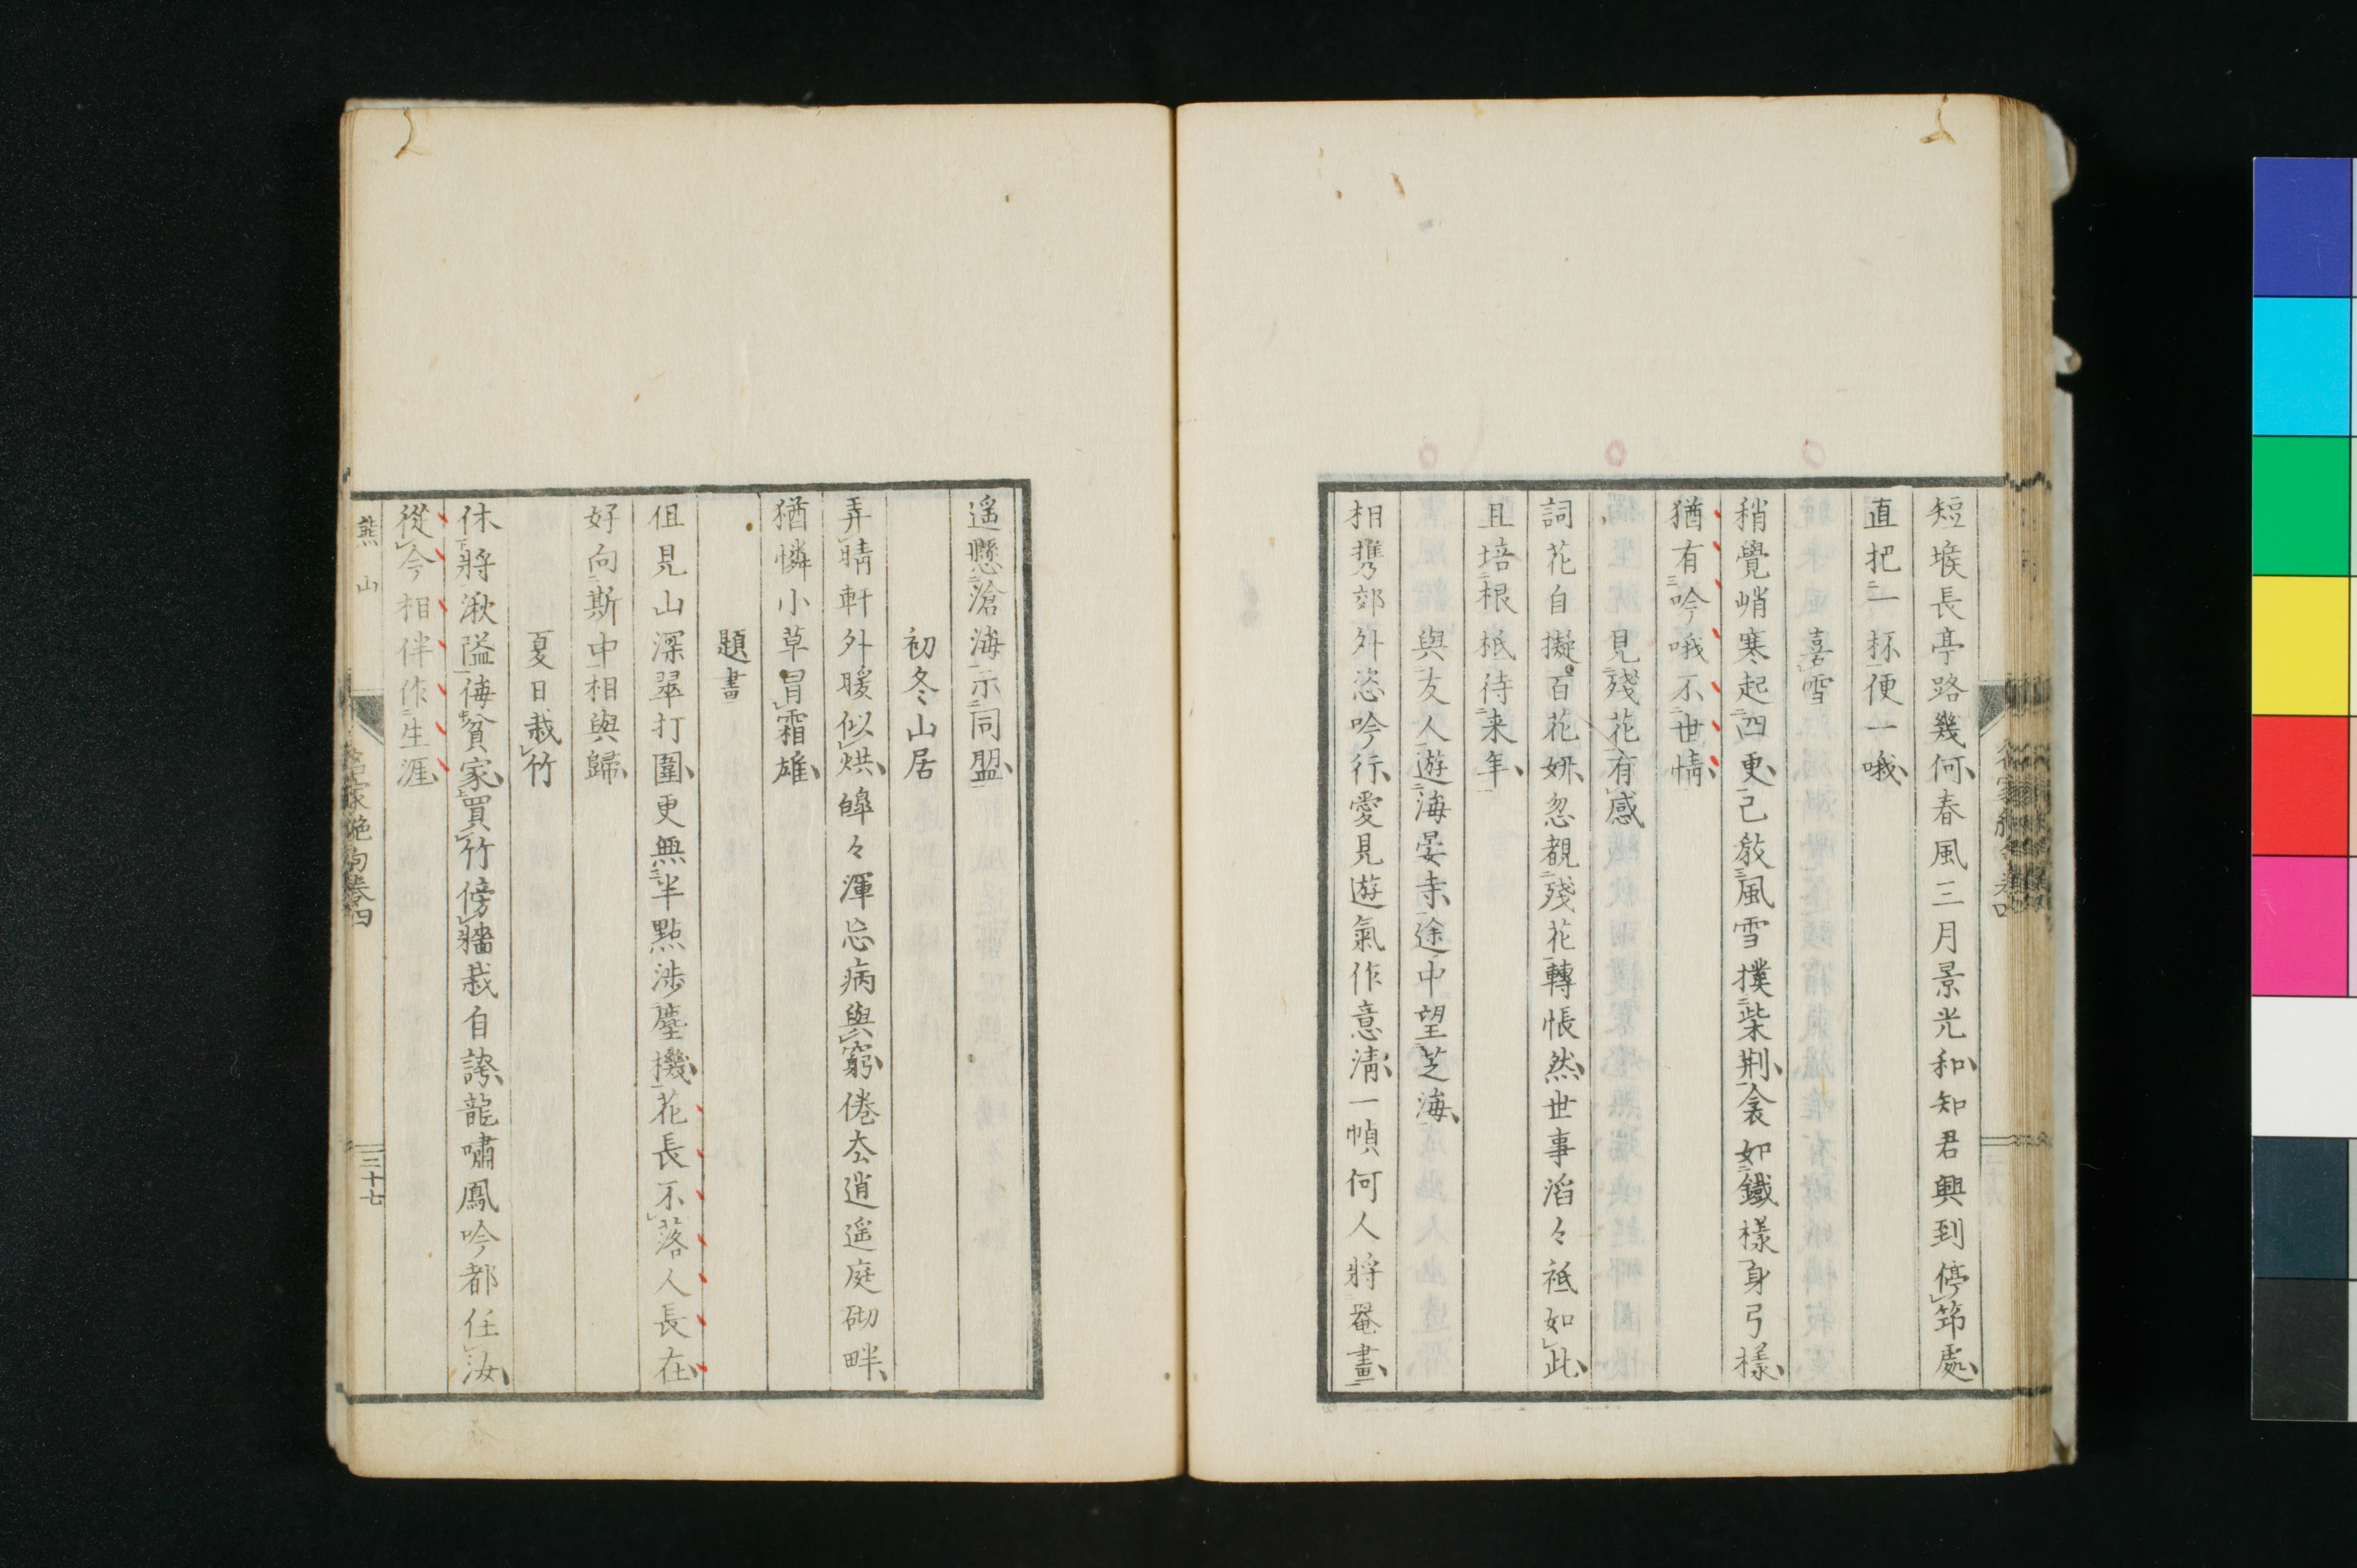 短堠長亭路幾何春風三月景光和知君興到停筇處
直把一杯便一哦
喜雪
稍覺峭寒起四更已敎風雪撲柴荆衾如鐵樣身弓樣
猶有吟哦不世情
見殘花有感
詞花自擬百花妍忽覩殘花轉悵然世事滔々祗如此
且培根柢待来年
與友人遊海晏寺途中望芝海
相携郊外恣吟行愛見遊氣作意淸一幀何人將罨畫
遥懸滄海示同盟
初冬山居
弄晴軒外暖似烘皥々渾忘病與窮倦厺逍遥庭砌畔
猶憐小草冒霜雄
題畫
但見山深翠打圍更無半點涉塵機花長不落人長在
好向斯中相與歸
夏日栽竹
休將湫隘侮貧家買竹傍牆栽自誇龍嘯鳳吟都任汝
從今相伴作生涯
熊山
名家絶句卷四
三十七